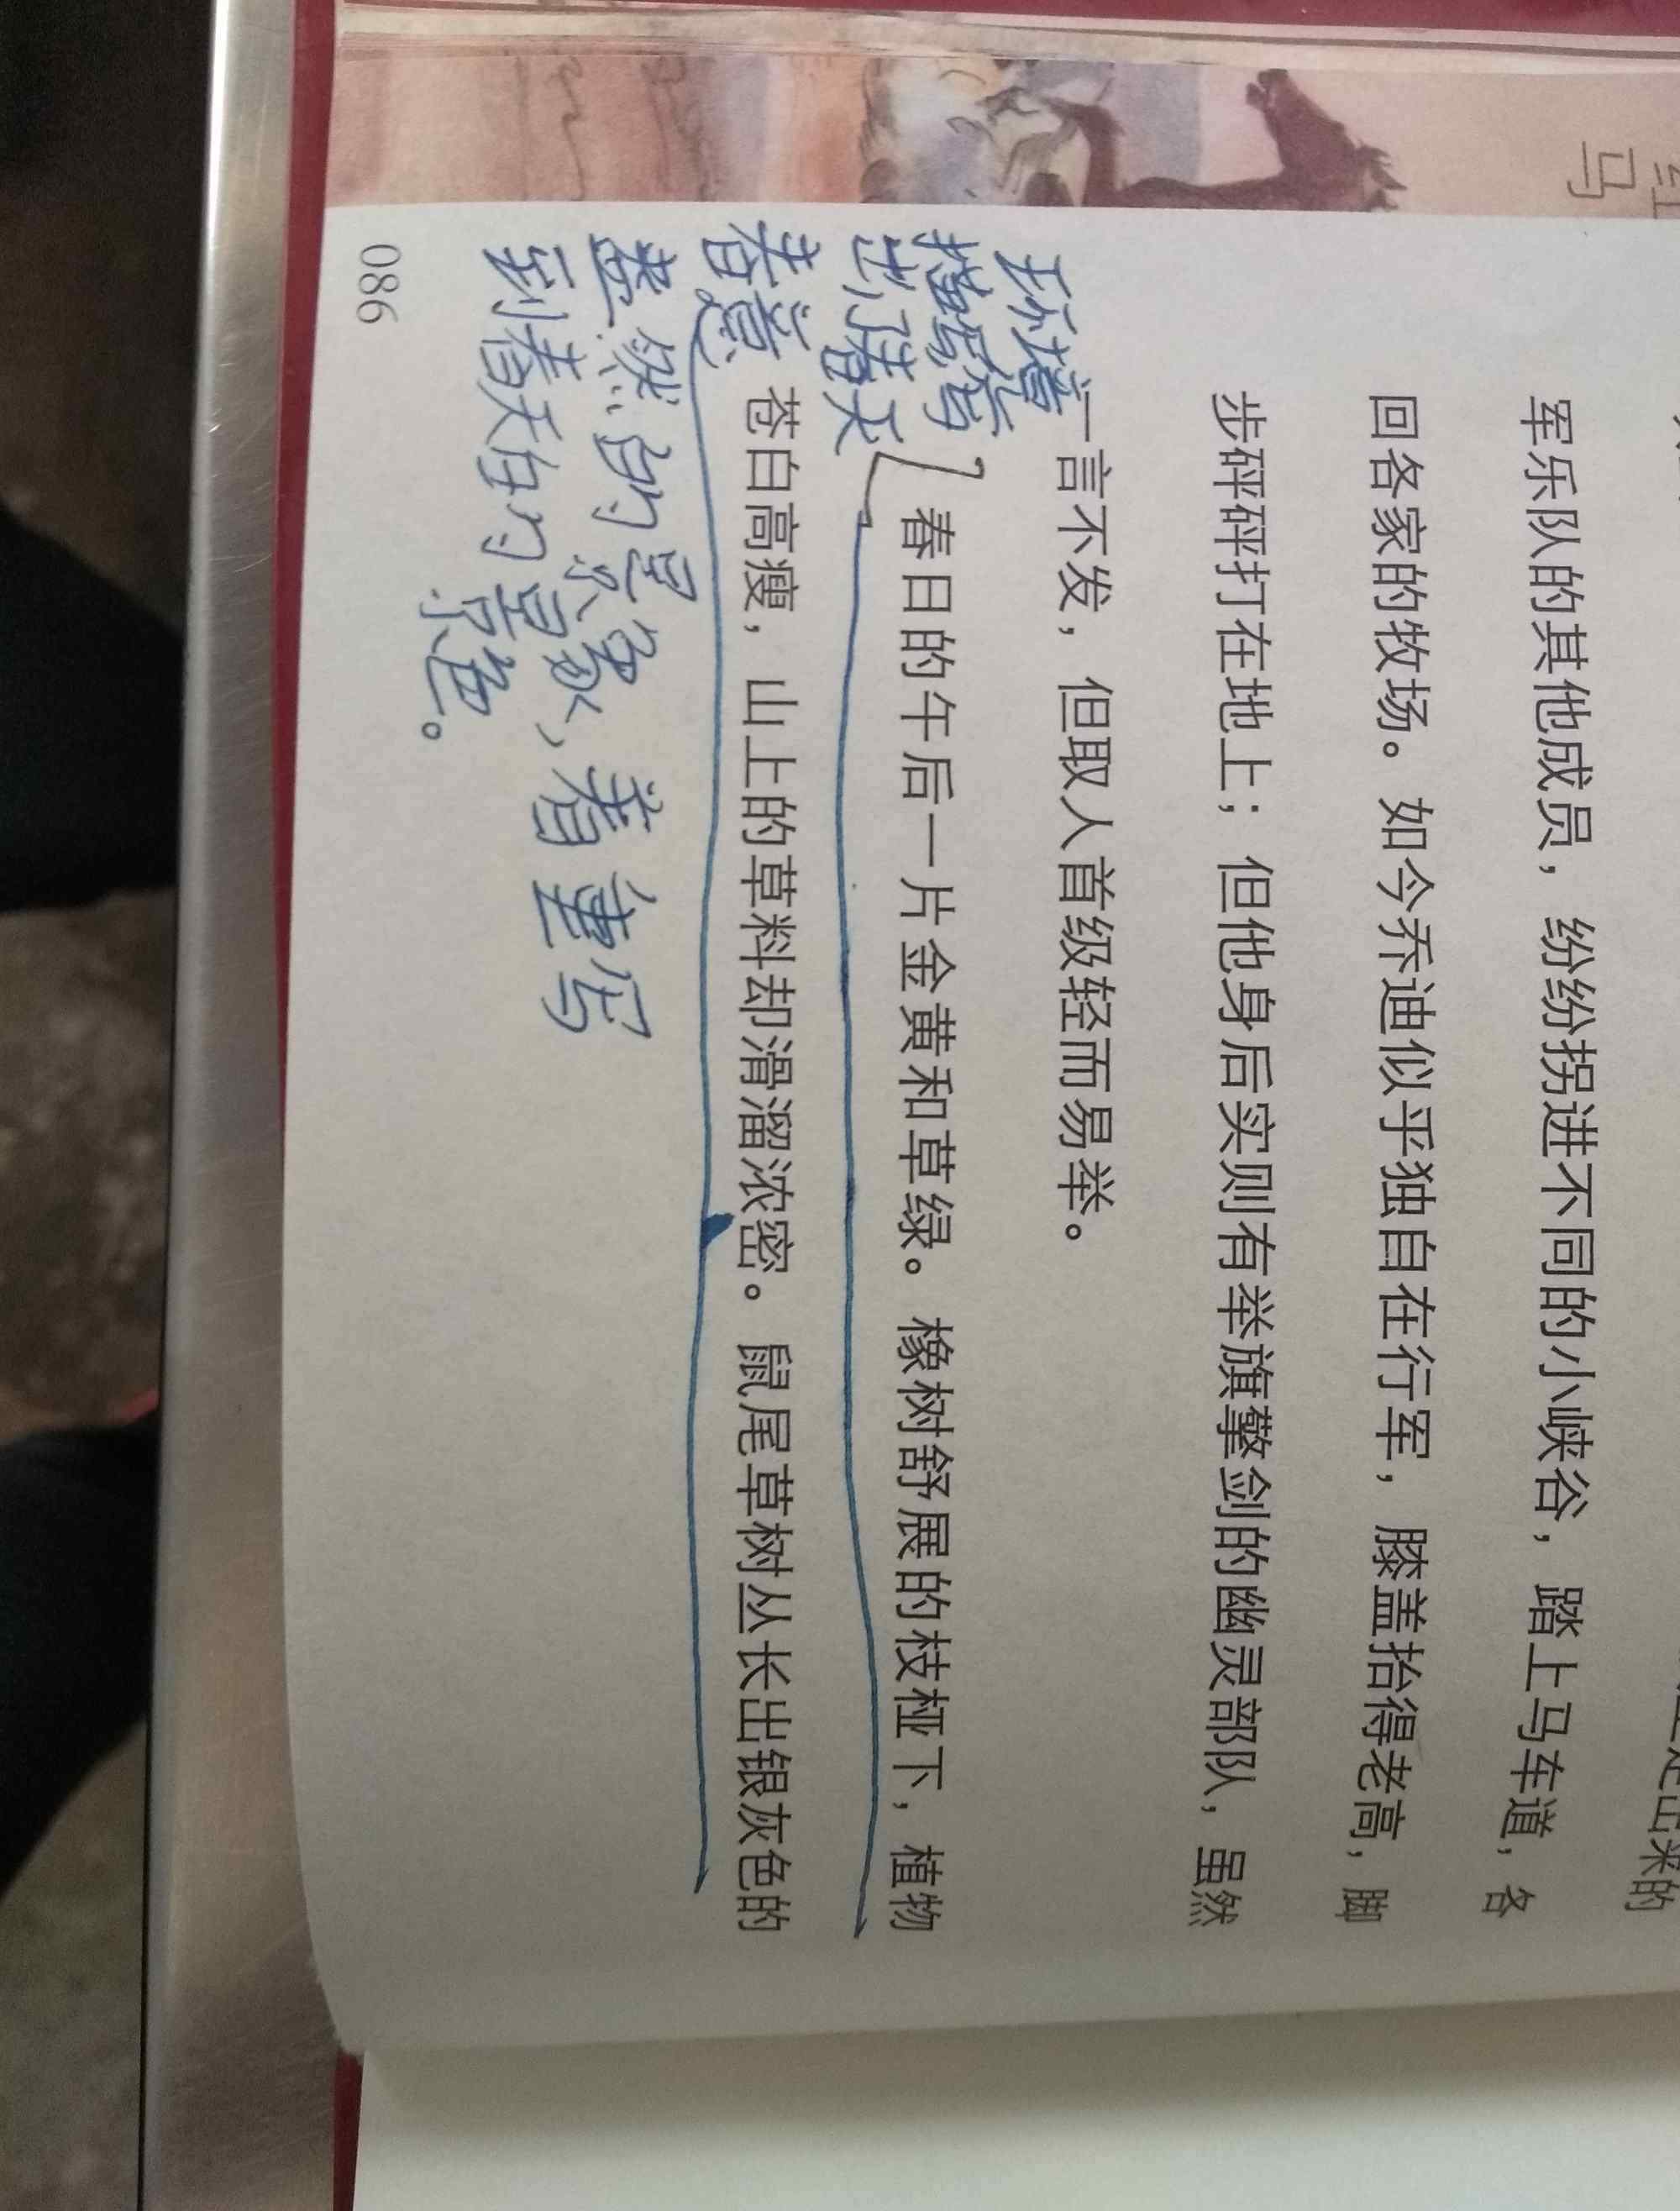 马
军乐队的其他成员，纷纷拐进不同的小峡谷，踏上马车道，各
回各家的牧场。如今乔迪似乎独自在行军，膝盖抬得老高，脚
步砰砰打在地上；但他身后实则有举旗擎剑的幽灵部队，虽然
一言不发，但取人首级轻而易举。
春日的午后一片金黄和草绿。橡树舒展的枝桠下，植物
苍白高瘦，山上的草料却滑溜浓密。鼠尾草树丛长出银灰色的
环境
描写，写
出了春天
春意
盎然的景象，着重写
到春天的
景色。
086